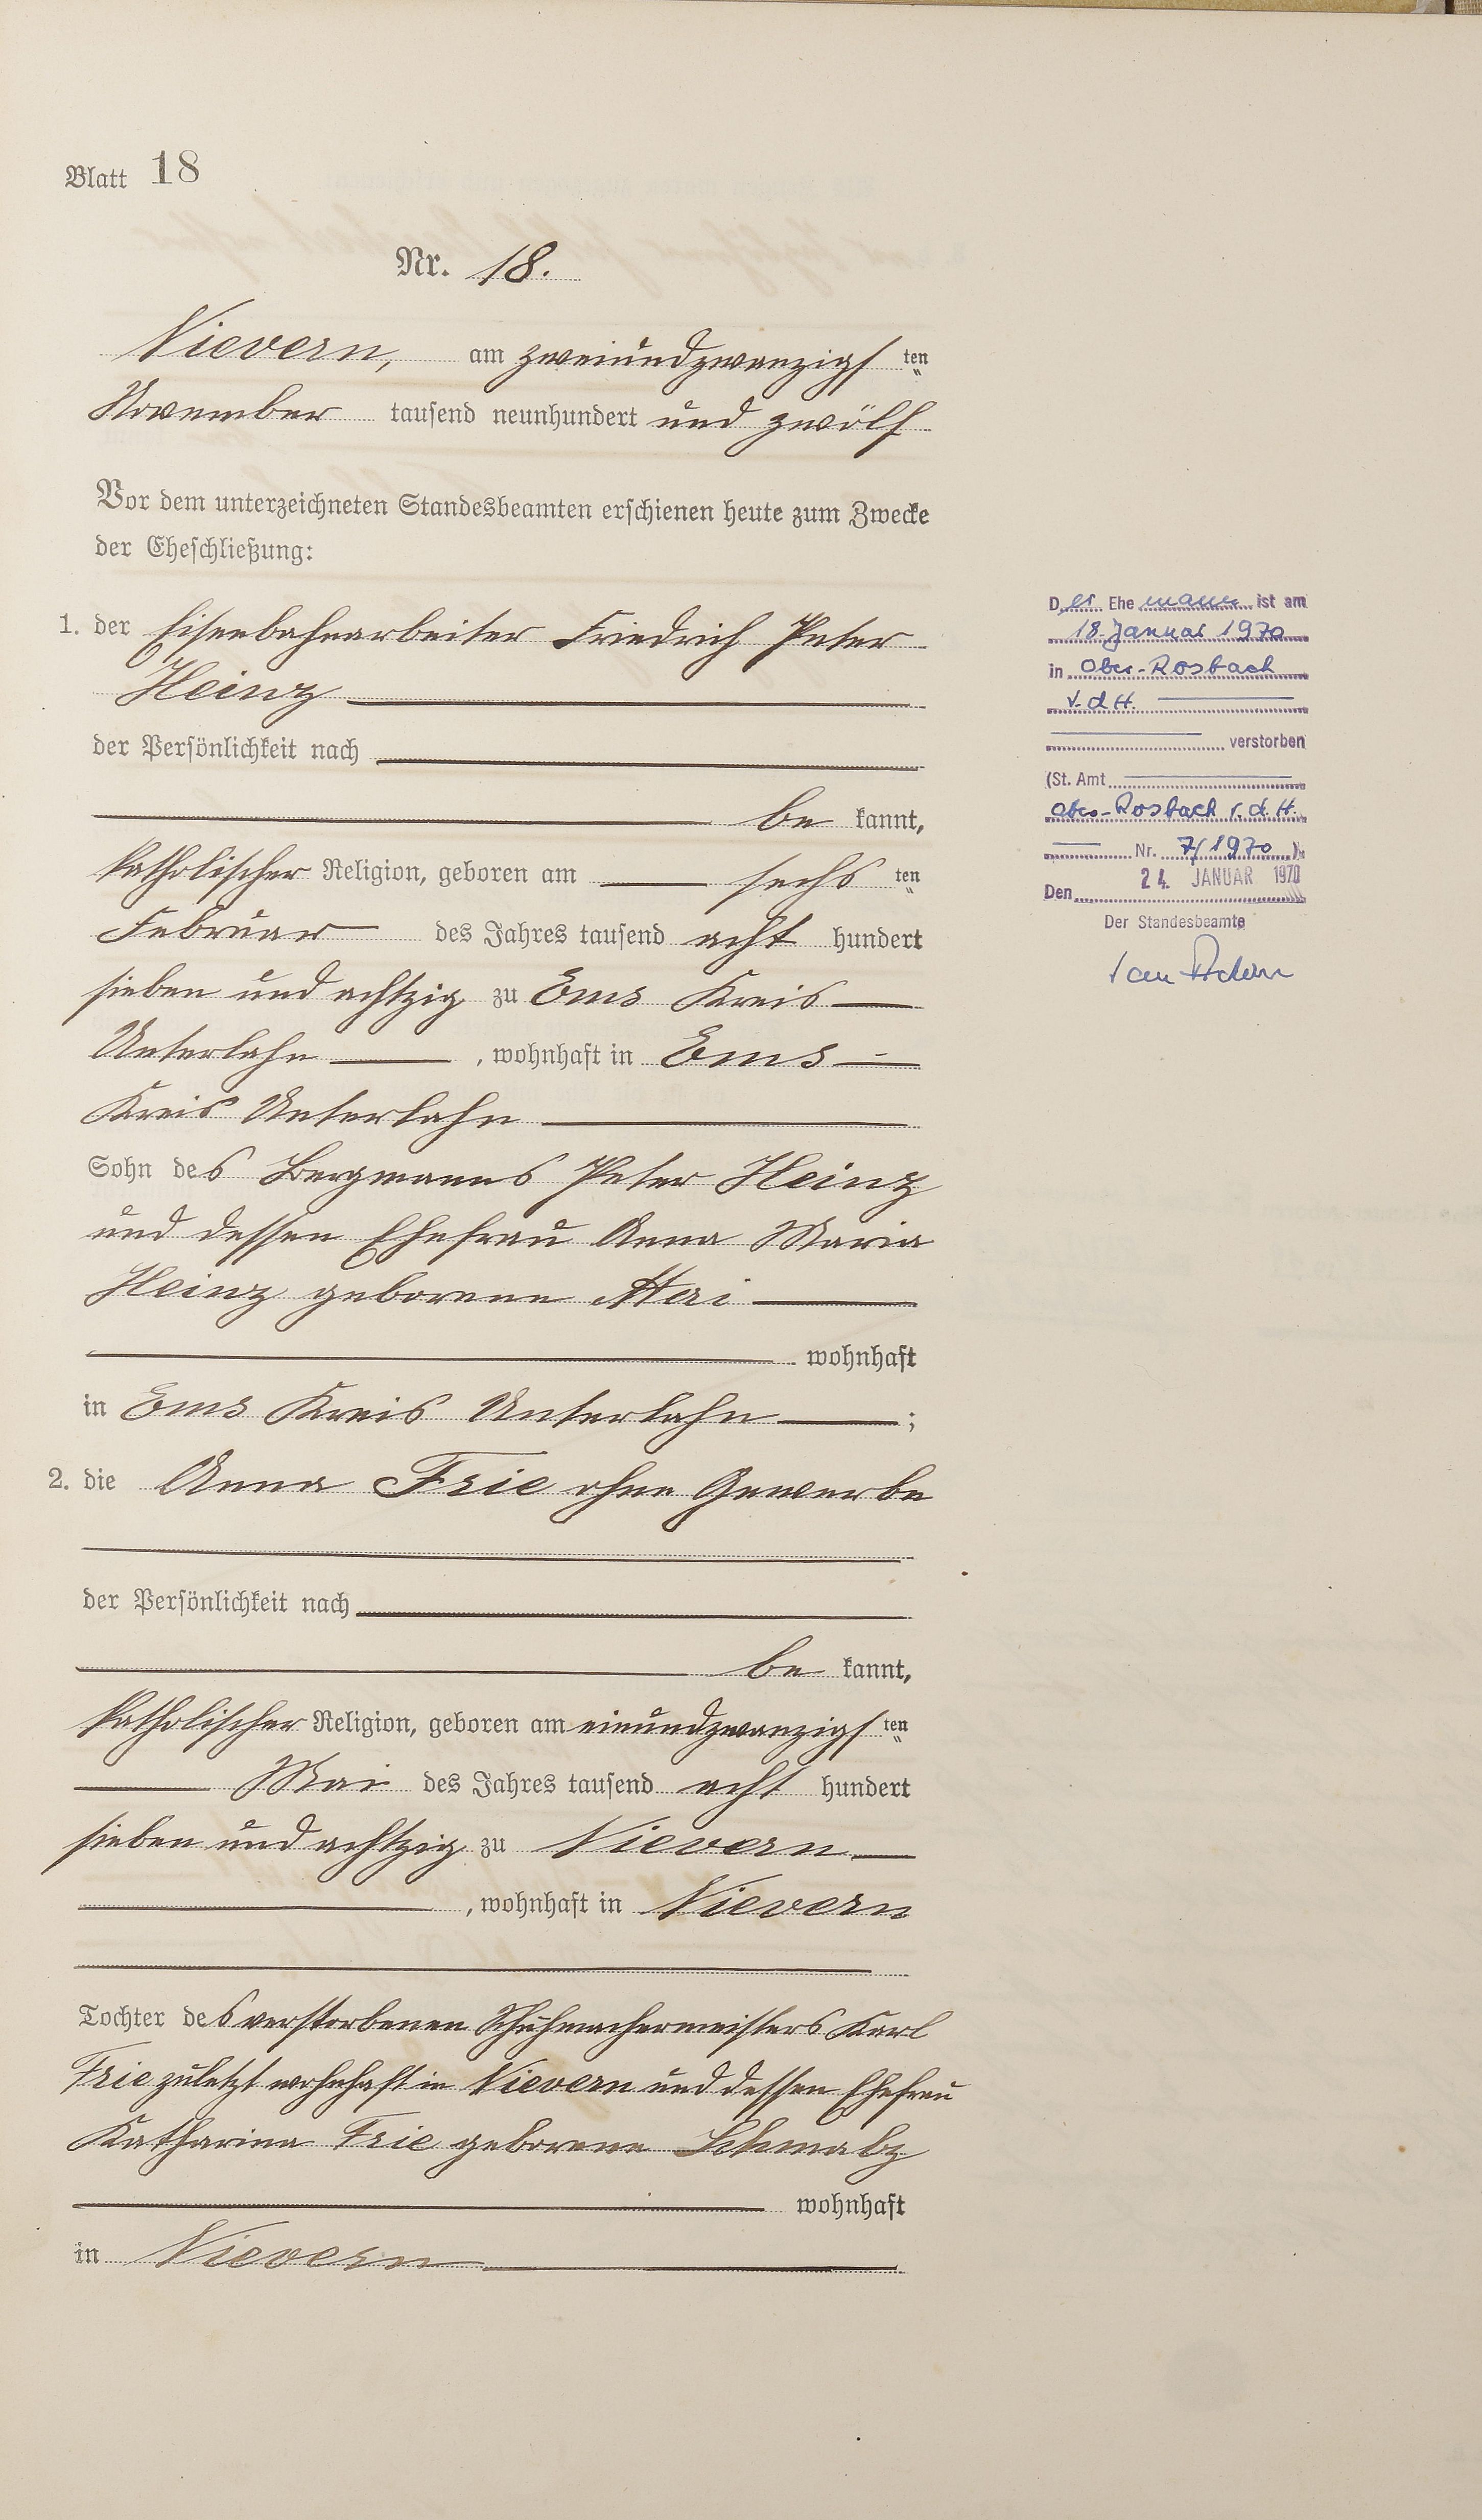 Blatt 18
Nr. 18.
Nievern, am zweiundzwanzigs ten
November tausend neunhundert und zwölf
Vor dem unterzeichneten Standesbeamten erschienen heute zum Zwecke
der Eheschließung:
1. der Eisenbahnarbeiter Friedrich Peter
Heinz
der Persönlichkeit nach
be kannt,
katholischer Religion, geboren am sechs ten
Februar des Jahres tausend acht hundert
sieben und achtzig zu Ems Kreis
Unterlahn, wohnhaft in Ems
Kreis Unterlahn
Sohn des Bergmanns Peter Heinz
und dessen Ehefrau Anna Maria
Heinz geborene
wohnhaft
in Ems Kreis Unterlahn;
2. die Anna Frie ohne Gewerbe
der Persönlichkeit nach
be kannt,
katholischer Religion, geboren am einundzwanzigs ten
Mai des Jahres tausend acht hundert
sieben und achtzig zu Nievern
, wohnhaft in Nievern
Tochter des verstorbenen Schuhmachermeisters Karl
Frie zuletzt wohnhaft in Nievern und dessen Ehefrau
Katharina Frie geborene Schmalz
wohnhaft
in Nievern
Der Ehe mann ist am
18. Januar 1970
in Ober-Rosbach
v. d H.
verstorben
(St. Amt
Ober-Rosbach v. d. H.
Nr. 7/1970)
Den 24. JANUAR 1970
Der Standesbeamte